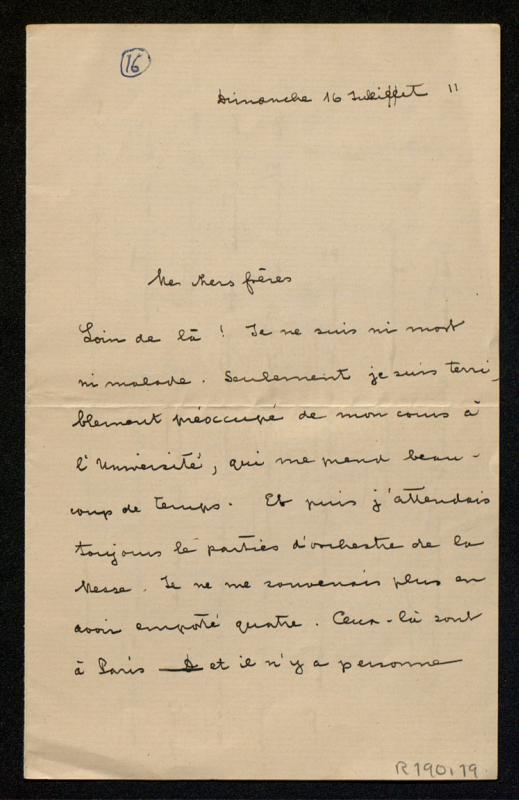 16
Dimanche 16 Juillet 11
Mes chers frères
Loin de là ! Je ne suis ni mort
ni malade. Seulement je suis terri-
blement préoccupé de mon cours à
l'Université, qui me prend beau-
coup de temps. Et puis j'attendais
toujours le parties d'orchestre de la
Messe. Je ne me souvenais plus en
avoir emporté quatre. Ceux-là sont
à Paris et il n'y a personne
R190.19